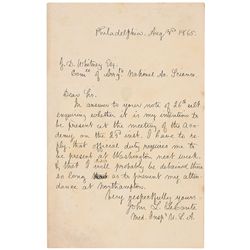 Philadelphia, Aug 8th 1865.
J. D. Whitney Esq.
Com'ee of Arr'gts National Ac. Science
Dear Sir.
In answer to your note of 26th ult
enquiring whether it is my intention to
be present at the meeting of the Aca-
demy on the 23d inst. I have to re-
ply, that official duty requires me to
be present at Washington next week,
& that I will probably be detained there
so long as to prevent my atten-
dance at Northampton.
Very respectfully yours
John L. LeConte
Med. Insp. U.S.A.